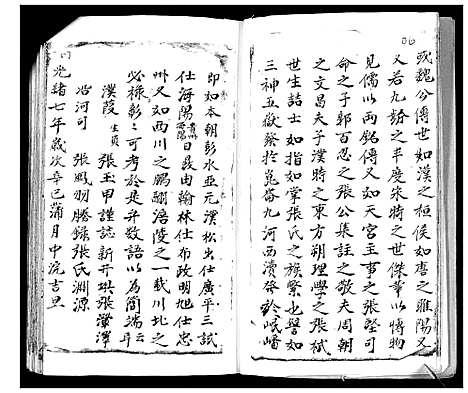 或魏公傳世如漢之桓侯如唐之雎陽又
又若九齡之丰度宋時之世傑章以博物
見儒以兩銘傳又如天宮主事之張堅可
命之子郭百忍之張公集註之敬夫周朝
之文昌夫子漢時之東方朔理學之張栻
世生詰士如指如掌張氏之族繁也譬如
三神五嶽發於崑崙九河西瀆發於岷嶓
即如本朝彭水亞元漢松出仕廣平三試
仕海陽 曰晸由翰林仕布政明旭仕忠
州又如西川之鵬翮涪陵之一載川北之
必祿彰彰可考於是并敘語以為簡端云
漢葭 生員 張玉甲謹誌新开珙張瀠澤
沿河司 張鵬羽謄錄張氏淵源
光緒七年歲次辛巳蒲月中浣吉旦